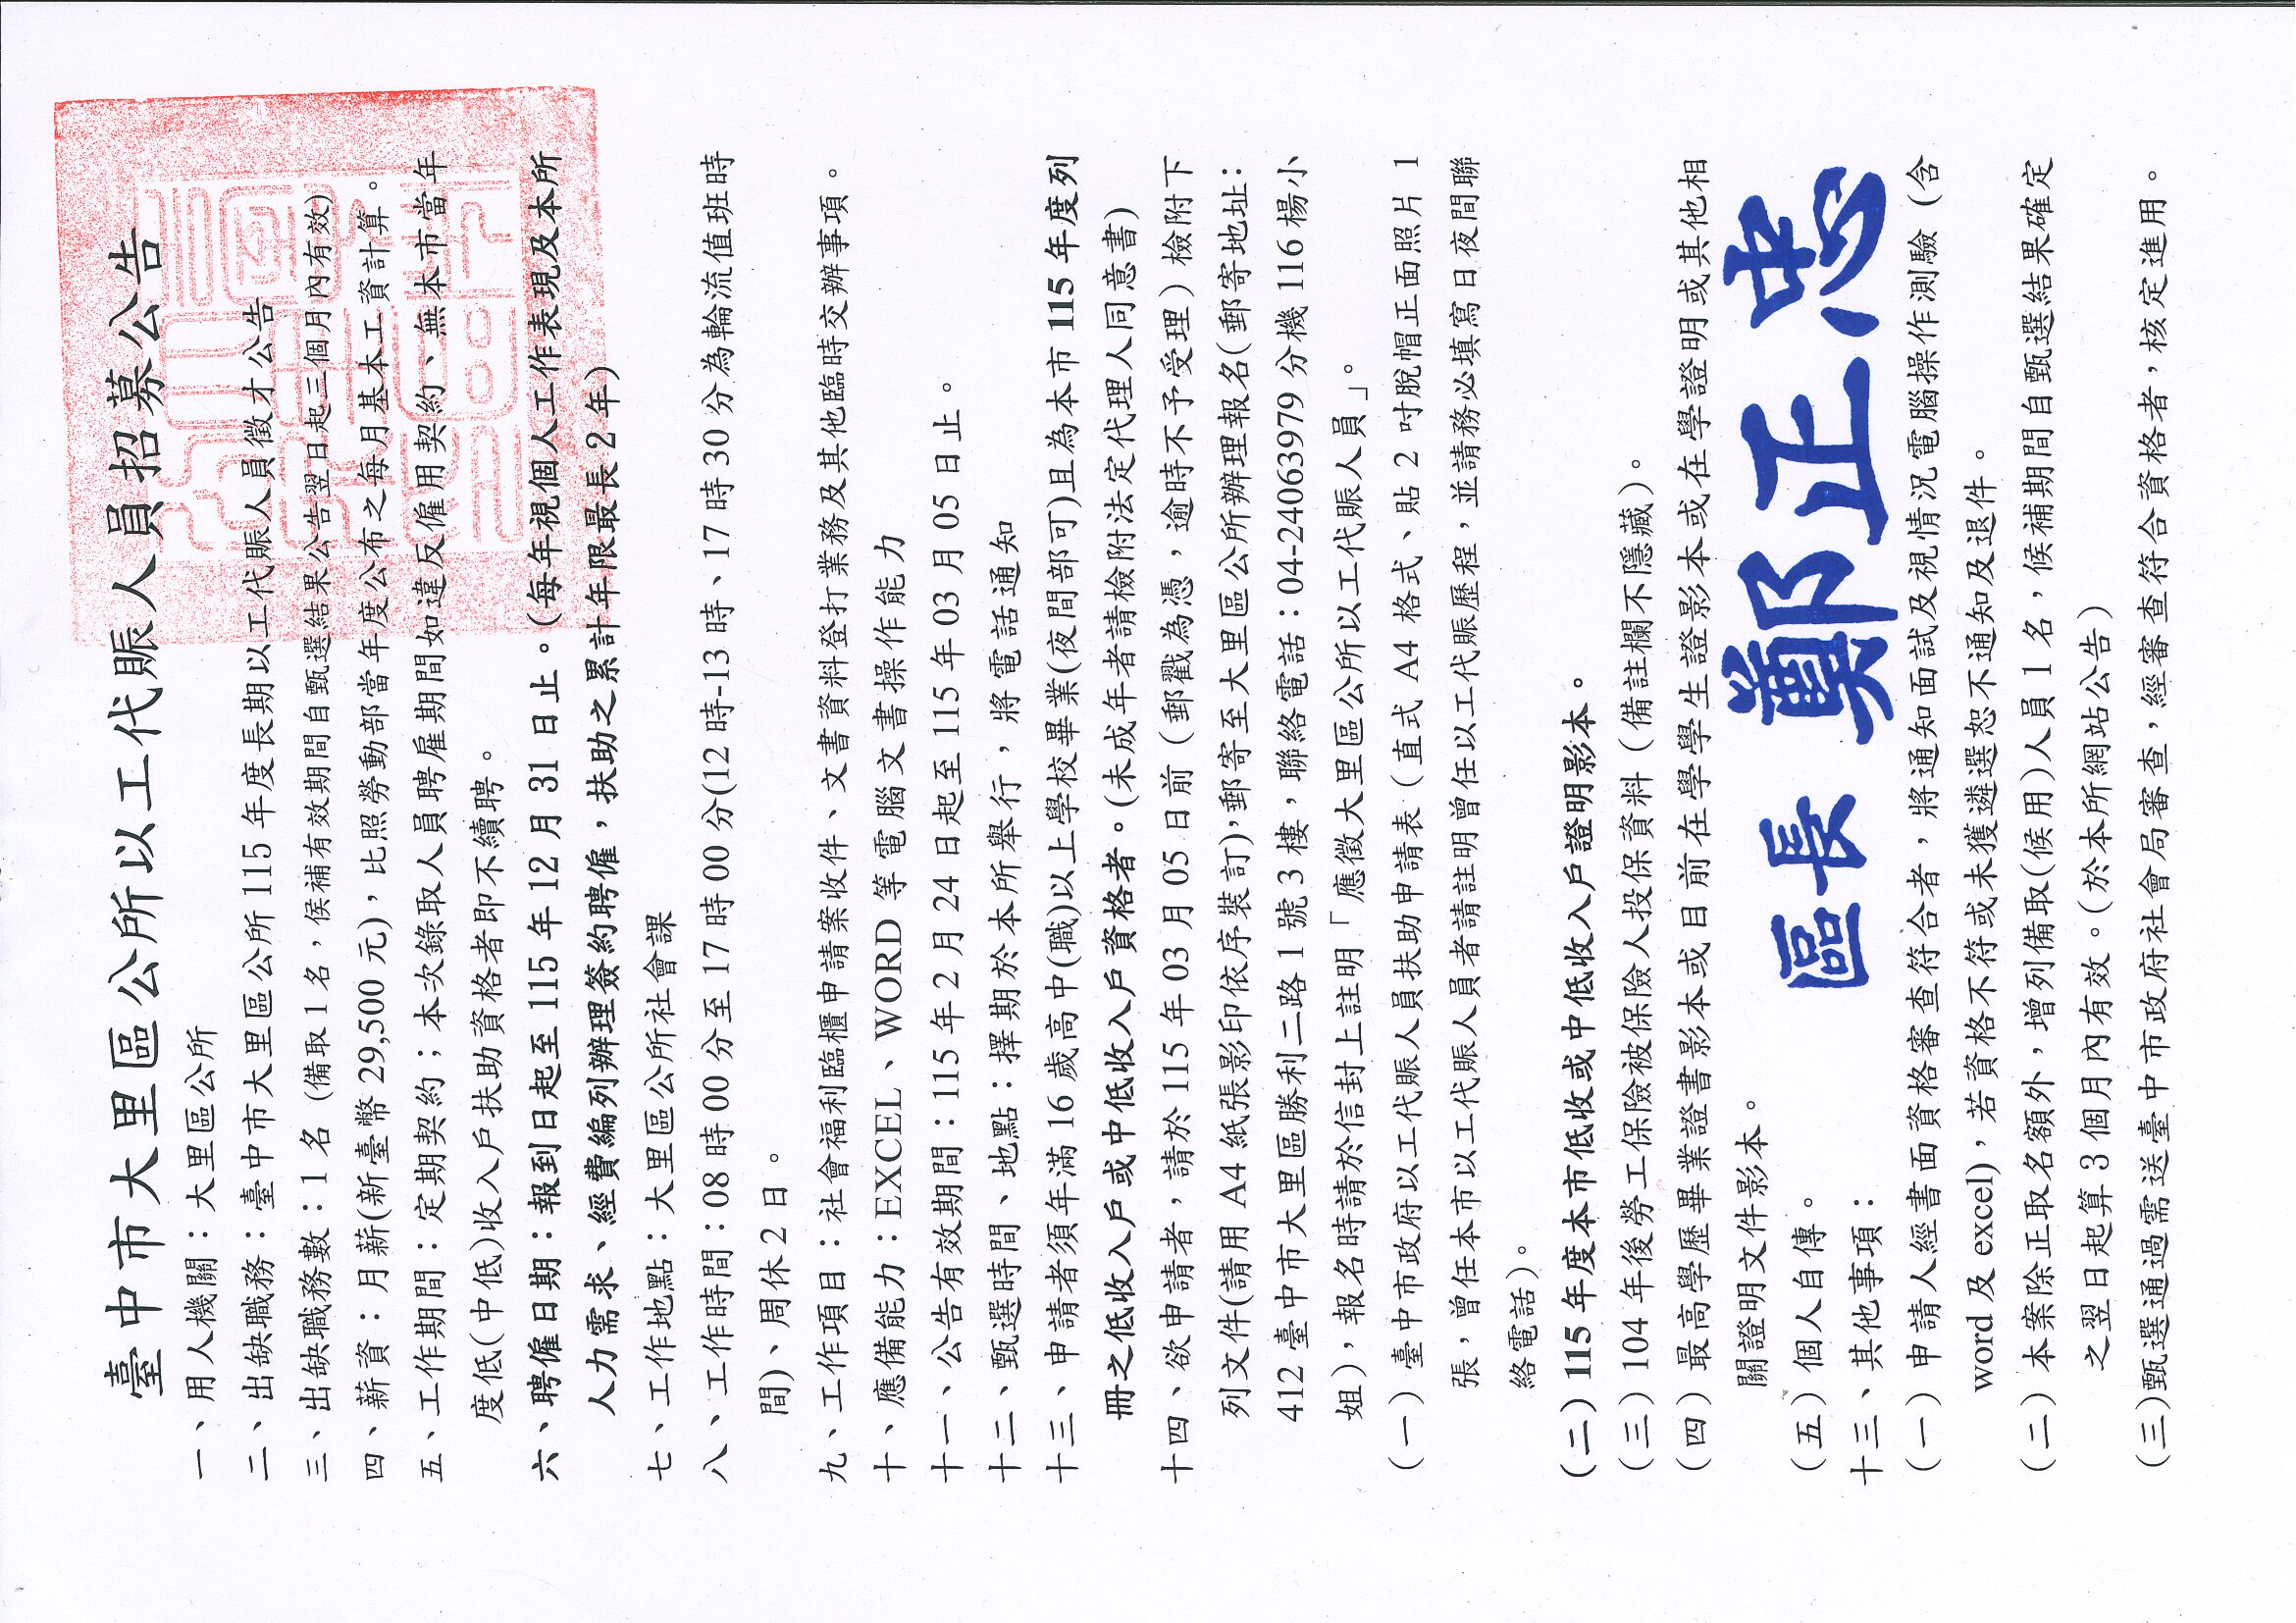 臺中市大里區公所以工代賑人員招募公告
一、用人機關：大里區公所
二、出缺職務：臺中市大里區公所115年度長期以工代賑人員徵才公告
三、出缺職務數：1名（備取1名，侯補有效期間自甄選結果公告翌日起三個月內有效)
四、薪資：月薪(新臺幣29,500元)，比照勞動部當年度公布之每月基本工資計算。
五、工作期間：定期契約；本次錄取人員聘雇期間如違反僱用契約、無本市當年
度低(中低)收入戶扶助資格者即不續聘。
六、聘僱日期：報到日起至115年12月31日止。(每年視個人工作表現及本所
人力需求、經費編列辦理簽約聘僱，扶助之累計年限最長2年)
七、工作地點：大里區公所社會課
八、工作時間：08時00分至17時00分(12時-13時、17時30分為輪流值班時
間)、周休2日。
九、工作項目：社會福利臨櫃申請案收件、文書資料登打業務及其他臨時交辦事項。
十、應備能力：EXCEL、WORD等電腦文書操作能力
十一、公告有效期間：115年2月24日起至115年03月05日止。
十二、甄選時間、地點：擇期於本所舉行，將電話通知
十三、申請者須年滿16歲高中(職)以上學校畢業(夜間部可)且為本市115年度列
冊之低收入戶或中低收入戶資格者。(未成年者請檢附法定代理人同意書)
十四、欲申請者，請於115年03月05日前（郵戳為憑，逾時不予受理）檢附下
列文件(請用A4紙張影印依序裝訂)，郵寄至大里區公所辦理報名(郵寄地址：
412臺中市大里區勝利二路1號3樓，聯絡電話：04-24063979分機116楊小
姐)，報名時請於信封上註明「應徵大里區公所以工代賑人員」。
（一）臺中市政府以工代賑人員扶助申請表（直式A4格式、貼2吋脫帽正面照片1
張，曾任本市以工代賑人員者請註明曾任以工代賑歷程，並請務必填寫日夜間聯
絡電話）。
（二）115年度本市低收或中低收入戶證明影本。
（三）104年後勞工保險被保險人投保資料（備註欄不隱藏）。
（四）最高學歷畢業證書影本或目前在學學生證影本或在學證明或其他相
關證明文件影本。
（五）個人自傳。
區長 鄭正忠
十三、其他事項：
（一）申請人經書面資格審查符合者，將通知面試及視情況電腦操作測驗（含
word及excel)，若資格不符或未獲遴選恕不通知及退件。
（二）本案除正取名額外，增列備取(候用)人員1名，候補期間自甄選結果確定
之翌日起算3個月內有效。(於本所網站公告)
（三）甄選通過需送臺中市政府社會局審查，經審查符合資格者，核定進用。